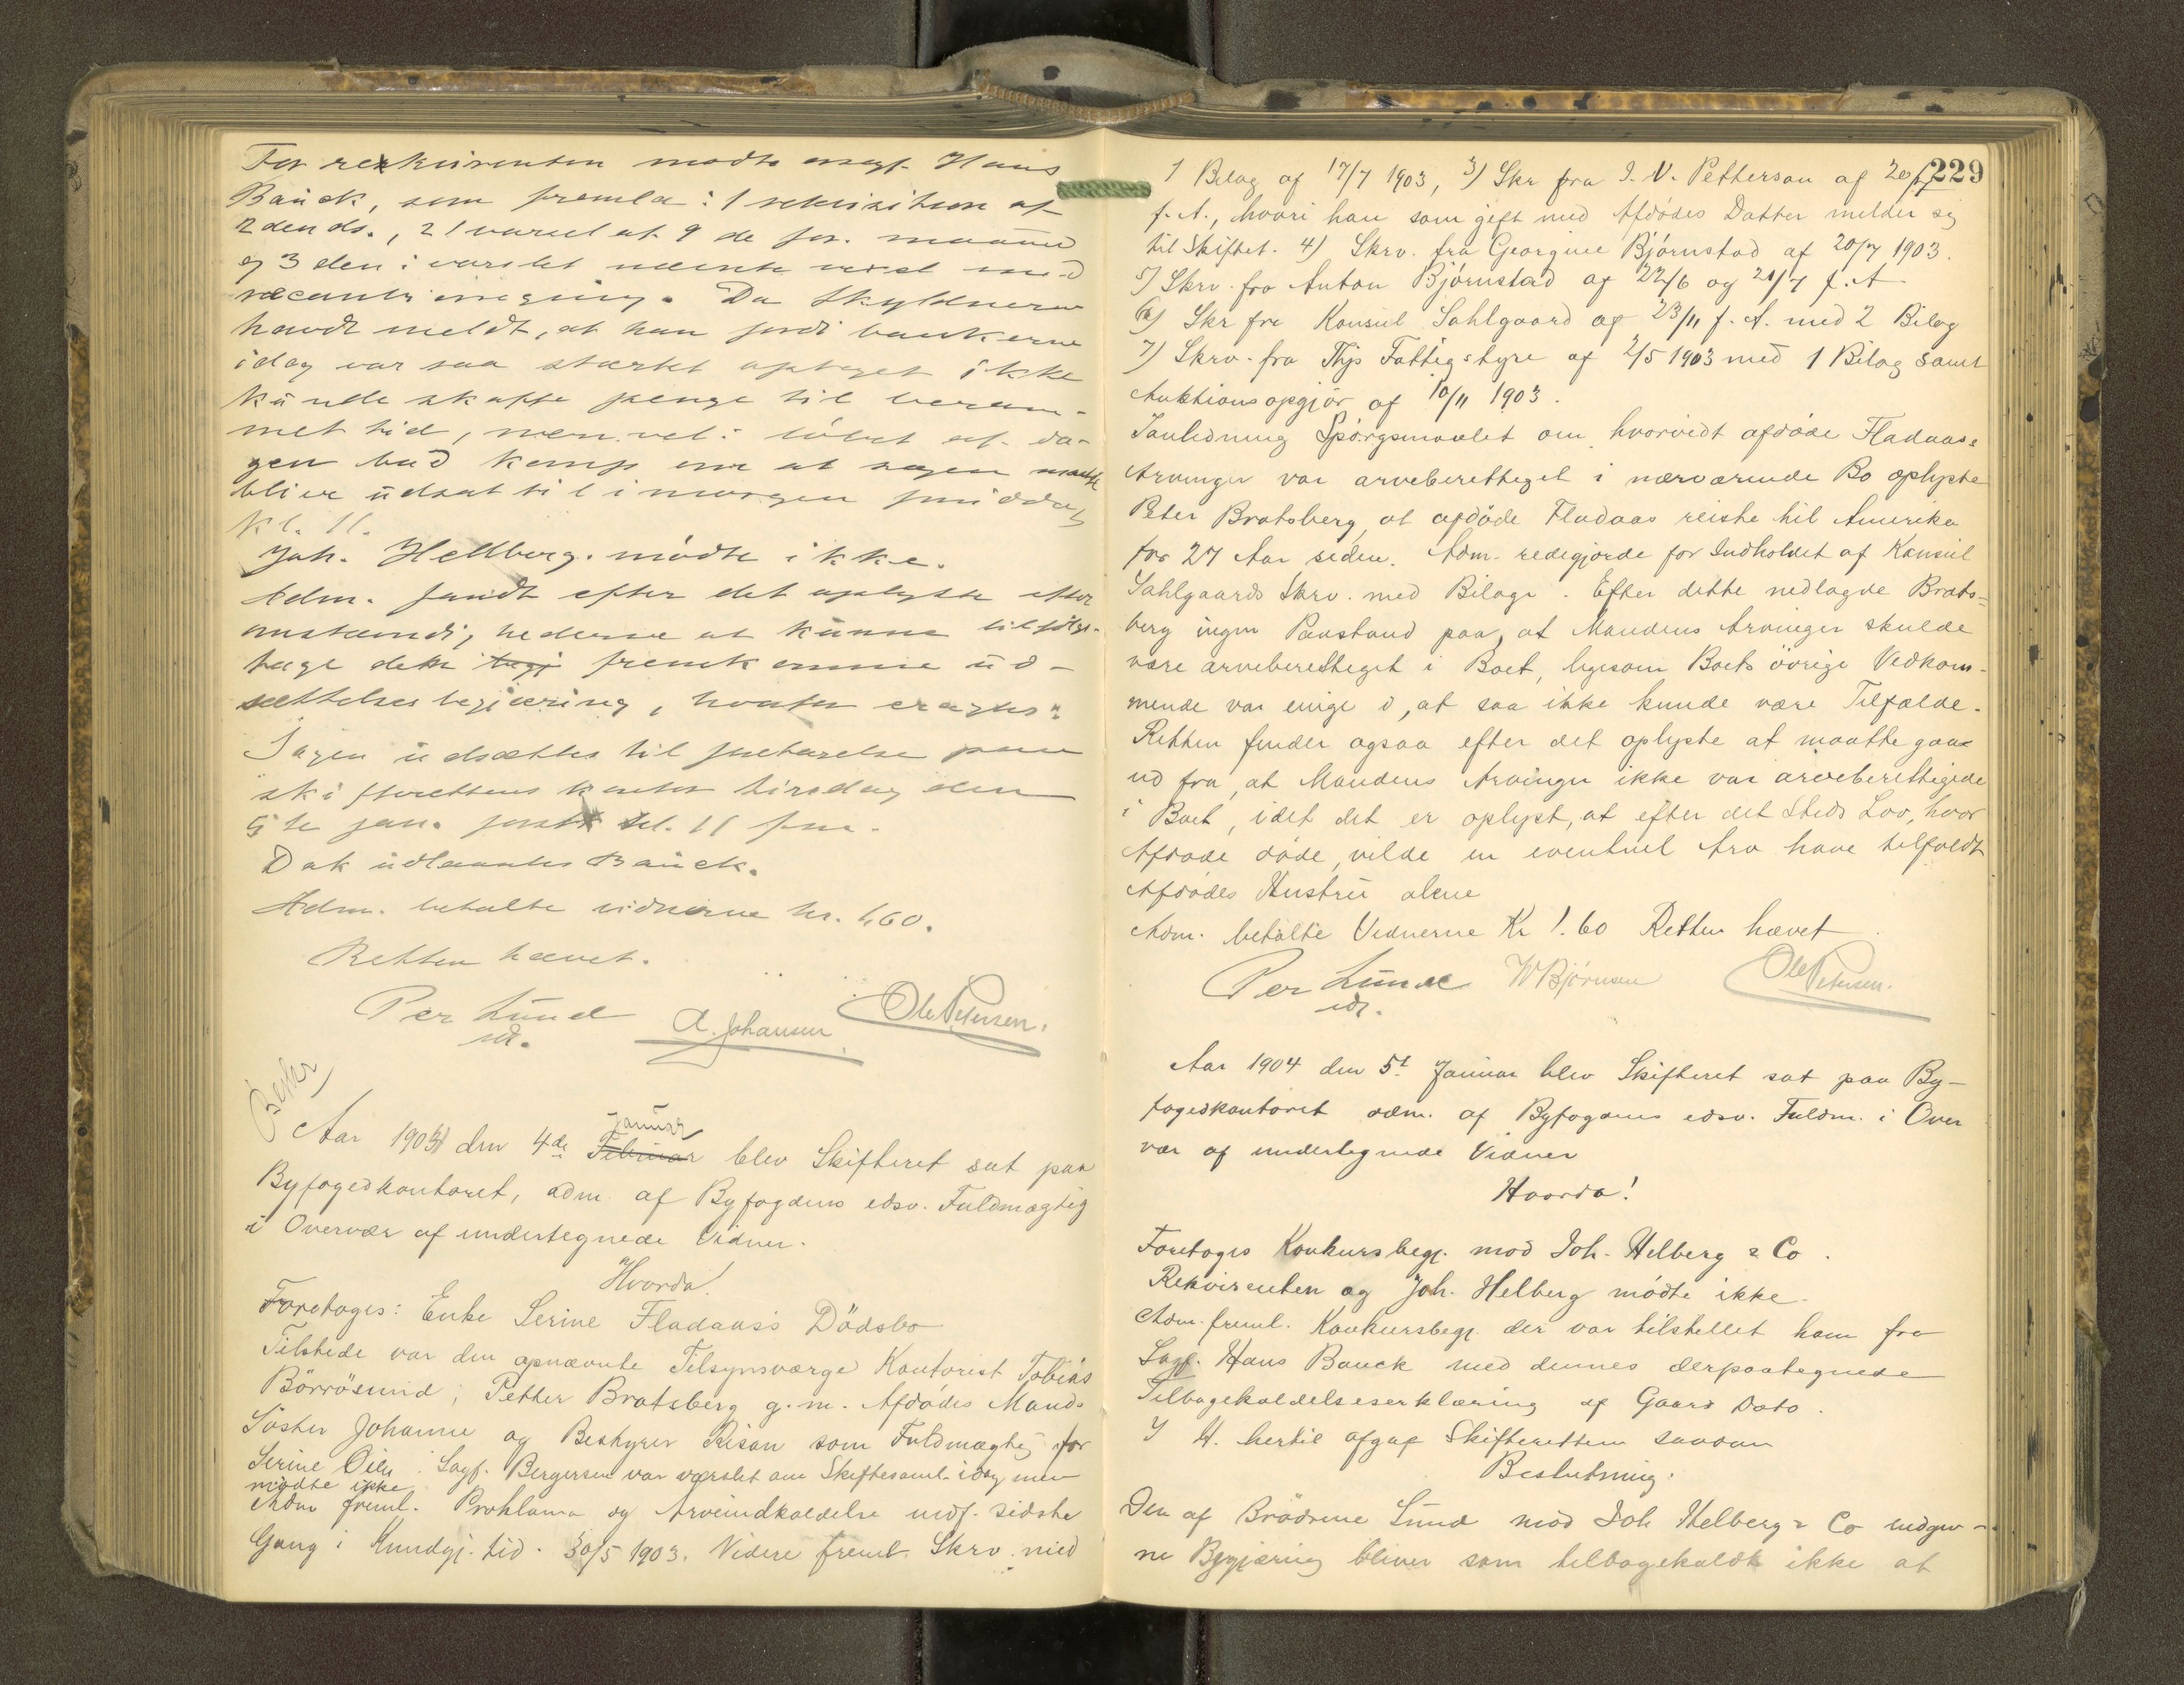 For rekvirenten mødte sagf. Hans
Bauck, som fremla: 1 rekvisition af
2den ds., 2 1 varsel af 9de for. maaned
og 3 den i varslet nævnte vexel med
Da Skyldneren
havde meldt, at han fordi bankerne
idag var saa stærkt optaget ikke
kunde skaffe penge til beram-
met tid, men vel i løbet af da-
gen bad komp om at sagen maatte
blive udsat til imorgen fmiddag
kl. 11.
Joh. Hellberg mødte ikke.
Adm. fandt efter det oplyste efter
omstændighederne at kunne tilføige-
tage den fremkomne ud-
sættelsesbegjæring, hvorfor eragtes:
Sagen udsættes til foretagelse paa
skifterettens kontor tirsdag den
5te jan. førstk. kl. 11 fm.
Dok udlaantes Bauck.
Adm. betalte vidnerne kr. 1,60.
Retten hævet.
Per Lund
edt.
A. Johansen
Ole Petersen.
Beskr
Januar
Aar 1904 den 4de Februar blev Skifteret sat paa
Byfogedkontoret, adm. af Byfogdens edsv. Fuldmægtig
i Overvær af undertegnede Vidner.
Hvorda!
Foretoges: Enke Serine Fladaas's Dödsbo
Tilstede var den opnævnte Tilsynsværge Kontorist Tobias
Börrösund; Petter Bratsberg g.m. Afdødes Mands
Söster Johanne og Bestyrer Risan som Fuldmægtig for
Serine Oilu. Sagf. Bergersen var varslet om Skiftesaml. idag men
mødte ikke
Adm freml. Proklama og Arveindkaldelse indf. sidste
Gang i Kundgj. tid. 30/5 1903. Videre freml. Skrv. med
229
1 Bilag af 17/7 1903, 3) Skr fra I. V. Petterson af 20/7
f. A., hvori han som gift med Afdødes Datter melder sig
til Skiftet. 4) Skrv. fra Georgine Bjørnstad af 20/7 1903.
5) Skrv. fra Anton Bjørnstad af 22/6 og 21/7 f. A
6) Skr fra Konsul Sahlgaard af 23/11 f. A. med 2 Bilag
7) Skrv. fra Thjs Fattigstyre af 2/5 1903 med 1 Bilag samt
Auktionsopgjör af 10/11 1903.
I anledning Spörgsmaalet om hvorvidt afdøde Fladaas's
Arvinger var arveberettiget i nærværende Bo oplyste
Peter Bratsberg, at afdøde Fladaas reiste til Amerika
for 27 Aar siden. Adm. redegjorde for Indholdet af Konsul
Sahlgaards Skrv. med Bilage. Efter dette nedlagde Brats=
berg ingen Paastand paa, at Mandens Arvinger skulde
være arveberettiget i Boet, ligesom Boets övrige Vedkom-
mende var enige i, at saa ikke kunde være Tilfælde.
Retten finder ogsaa efter det oplyste at maatte gaa
ud fra, at Mandens Arvinger ikke var arveberettigede
i Boet, idet det er oplyst, at efter det Steds Lov, hvor
Afdøde døde, vilde en eventuel Arv have tilfaldt
Afdødes Hustru alene
Adm. betalte Vidnerne Kr 1.60 Retten hævet.
Per Lund
edt.
W Bjørnsen
Ole Petersen.
Aar 1904 den 5t Januar blev Skifteret sat paa By-
fogedkontoret adm. af Byfogdens edsv. Fuldm. i Over
vær af undertegnede Vidner
Hvorda!
Foretoges Konkursbegj. mod Joh. Helberg & Co.
Rekvirenten og Joh. Helberg mødte ikke.
Adm. freml. Konkursbegj. der var tilstillet ham fra
Sagf. Hans Bauck med dennes derpaategnede
Tilbagekaldelseserklæring af Gaars Dato.
I H. hertil afgaf Skifteretten saadan
Beslutning:
Den af Brödrene Lund mod Joh Helberg & Co indgiv-
ne Begjæring bliver som tilbagekaldt ikke at